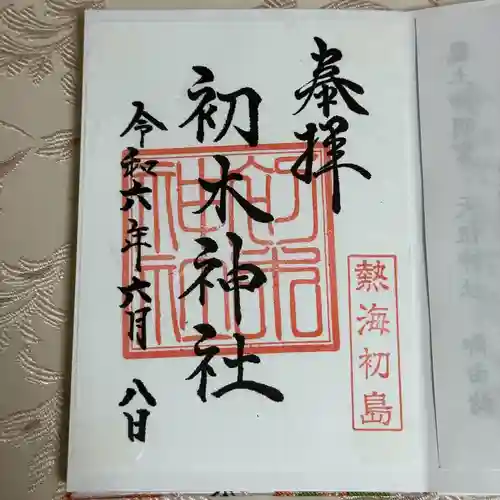 奉拝
熱海初島
初木神社
初木神社
令和六年六月八日